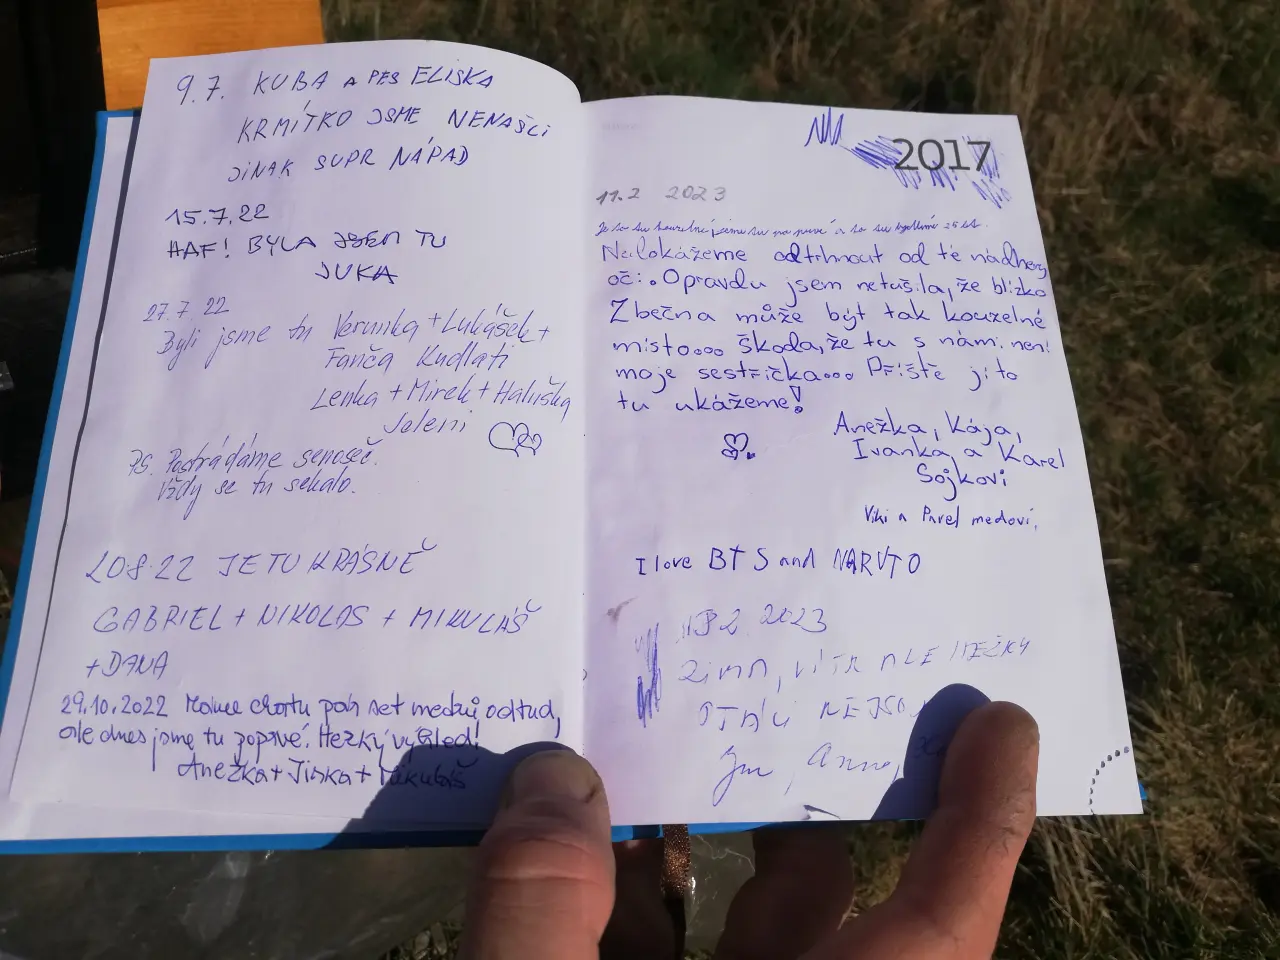 9.7. KUBA A PES ELIŠKA
KRMÍTKO JSME NENAŠLI
JINAK SUPR NÁPAD
15.7.22
HAF! BYLA JSEM TU
JUKA
27.7.22
Byli jsme tu Verunka + Lukášek +
Fanča Kudlati
Lenka + Mirek + Haluška
Jeleni
PS. Postrádáme senoseč.
Vždy se tu sekalo.
20.8.22 JE TU KRÁSNĚ
GABRIEL + NIKOLAS + MIKULÁŠ
+ DANA
29.10.2022 kousek odtud,
ale dnes jsme tu poprvé. Hezký výhled!
Anežka + Jirka + Mikuláš
2017
11.2 2023
Je to tu jsme tu po prvé a to tu bydlíme
Nedokážeme odtrhnout od té nádhery
oči. Opravdu jsem netušila, že blízko
Zbečna může být tak kouzelné
místo... škoda, že tu s námi není
moje sestřička... Příště jí to
tu ukážeme!
Anežka, Kája,
Ivanka a Karel
Sojkovi
Viki a Pavel medovi,
I love BTS and NARUTO
2 2023
ZIMA, VÍTR ALE HEZKY
NEJSO
Anna,